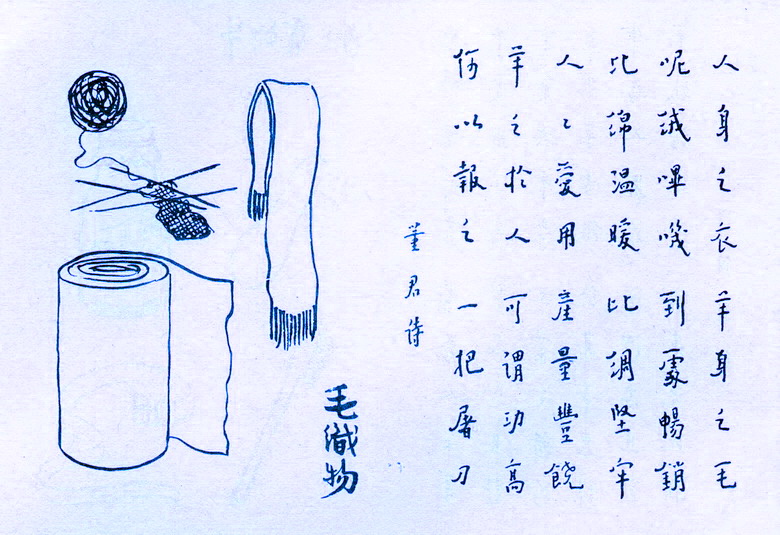 人身之衣 羊身之毛
呢絨嗶嘰 到處暢銷
比綿温暖 比綢堅牢
人々愛用 產量豐饒
羊之於人 可謂功高
何以報之 一把屠刀
董君詩
毛織物